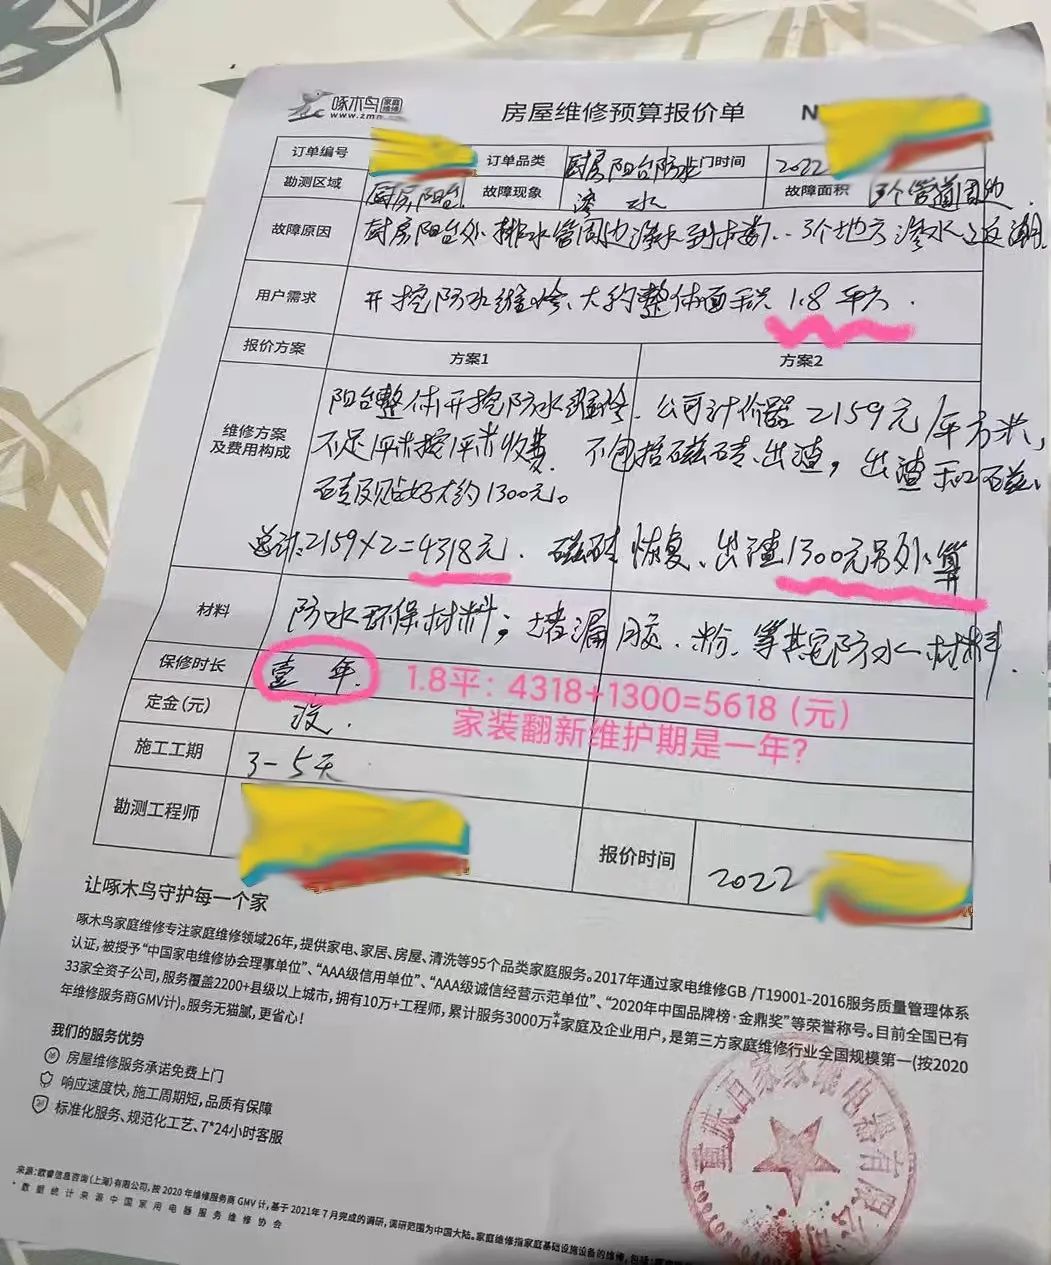 啄木鸟 家庭维修
www.zmn
房屋维修预算报价单
N
订单编号 订单品类 厨房阳台防水 门时间 2022
勘测区域 厨房,阳台 故障现象 渗水 故障面积 3个管道周边.
故障原因 厨房阳台外排水管周边渗水到楼下..3个地方渗水返潮.
用户需求 开挖防水维修、大约整体面积 1.8平方.
报价方案 方案1 方案2
维修方案及费用构成
阳台整体开挖防水维修. 公司计价器2159元/平方米,
不足1平米按1平米收费. 不包括磁砖、出渣, 出渣和磁
砖及贴好大约1300元。
总计:2159×2=4318元. 磁砖恢复、出渣1300元另外算
材料 防水环保材料; 堵漏胶.粉.等其它防水材料.
保修时长 壹年.
1.8平:4318+1300=5618(元)
家装翻新维护期是一年?
定金(元) 没.
施工工期 3-5天
勘测工程师 报价时间 2022
让啄木鸟守护每一个家
啄木鸟家庭维修专注家庭维修领域26年,提供家电、家居、房屋、清洗等95个品类家庭服务。2017年通过家电维修GB/T19001-2016服务质量管理体系
认证,被授予“中国家电维修协会理事单位”、“AAA级信用单位”、“AAA级诚信经营示范单位”、“2020年中国品牌榜·金鼎奖”等荣誉称号。目前全国已有
33家全资子公司,服务覆盖2200+县级以上城市,拥有10万+工程师,累计服务3000万+*家庭及企业用户,是第三方家庭维修行业全国规模第一(按2020
年维修服务商GMV计)。服务无猫腻,更省心!
我们的服务优势
房屋维修服务承诺免费上门
响应速度快,施工周期短,品质有保障
标准化服务、规范化工艺、7*24小时客服
来源:欧睿信息咨询(上海)有限公司,按2020年维修服务商GMV计,基于2021年7月完成的调研,调研范围为中国大陆。家庭维修指家庭基础设施设备的维修,包括:
*数据统计来源中国家用电器服务维修协会